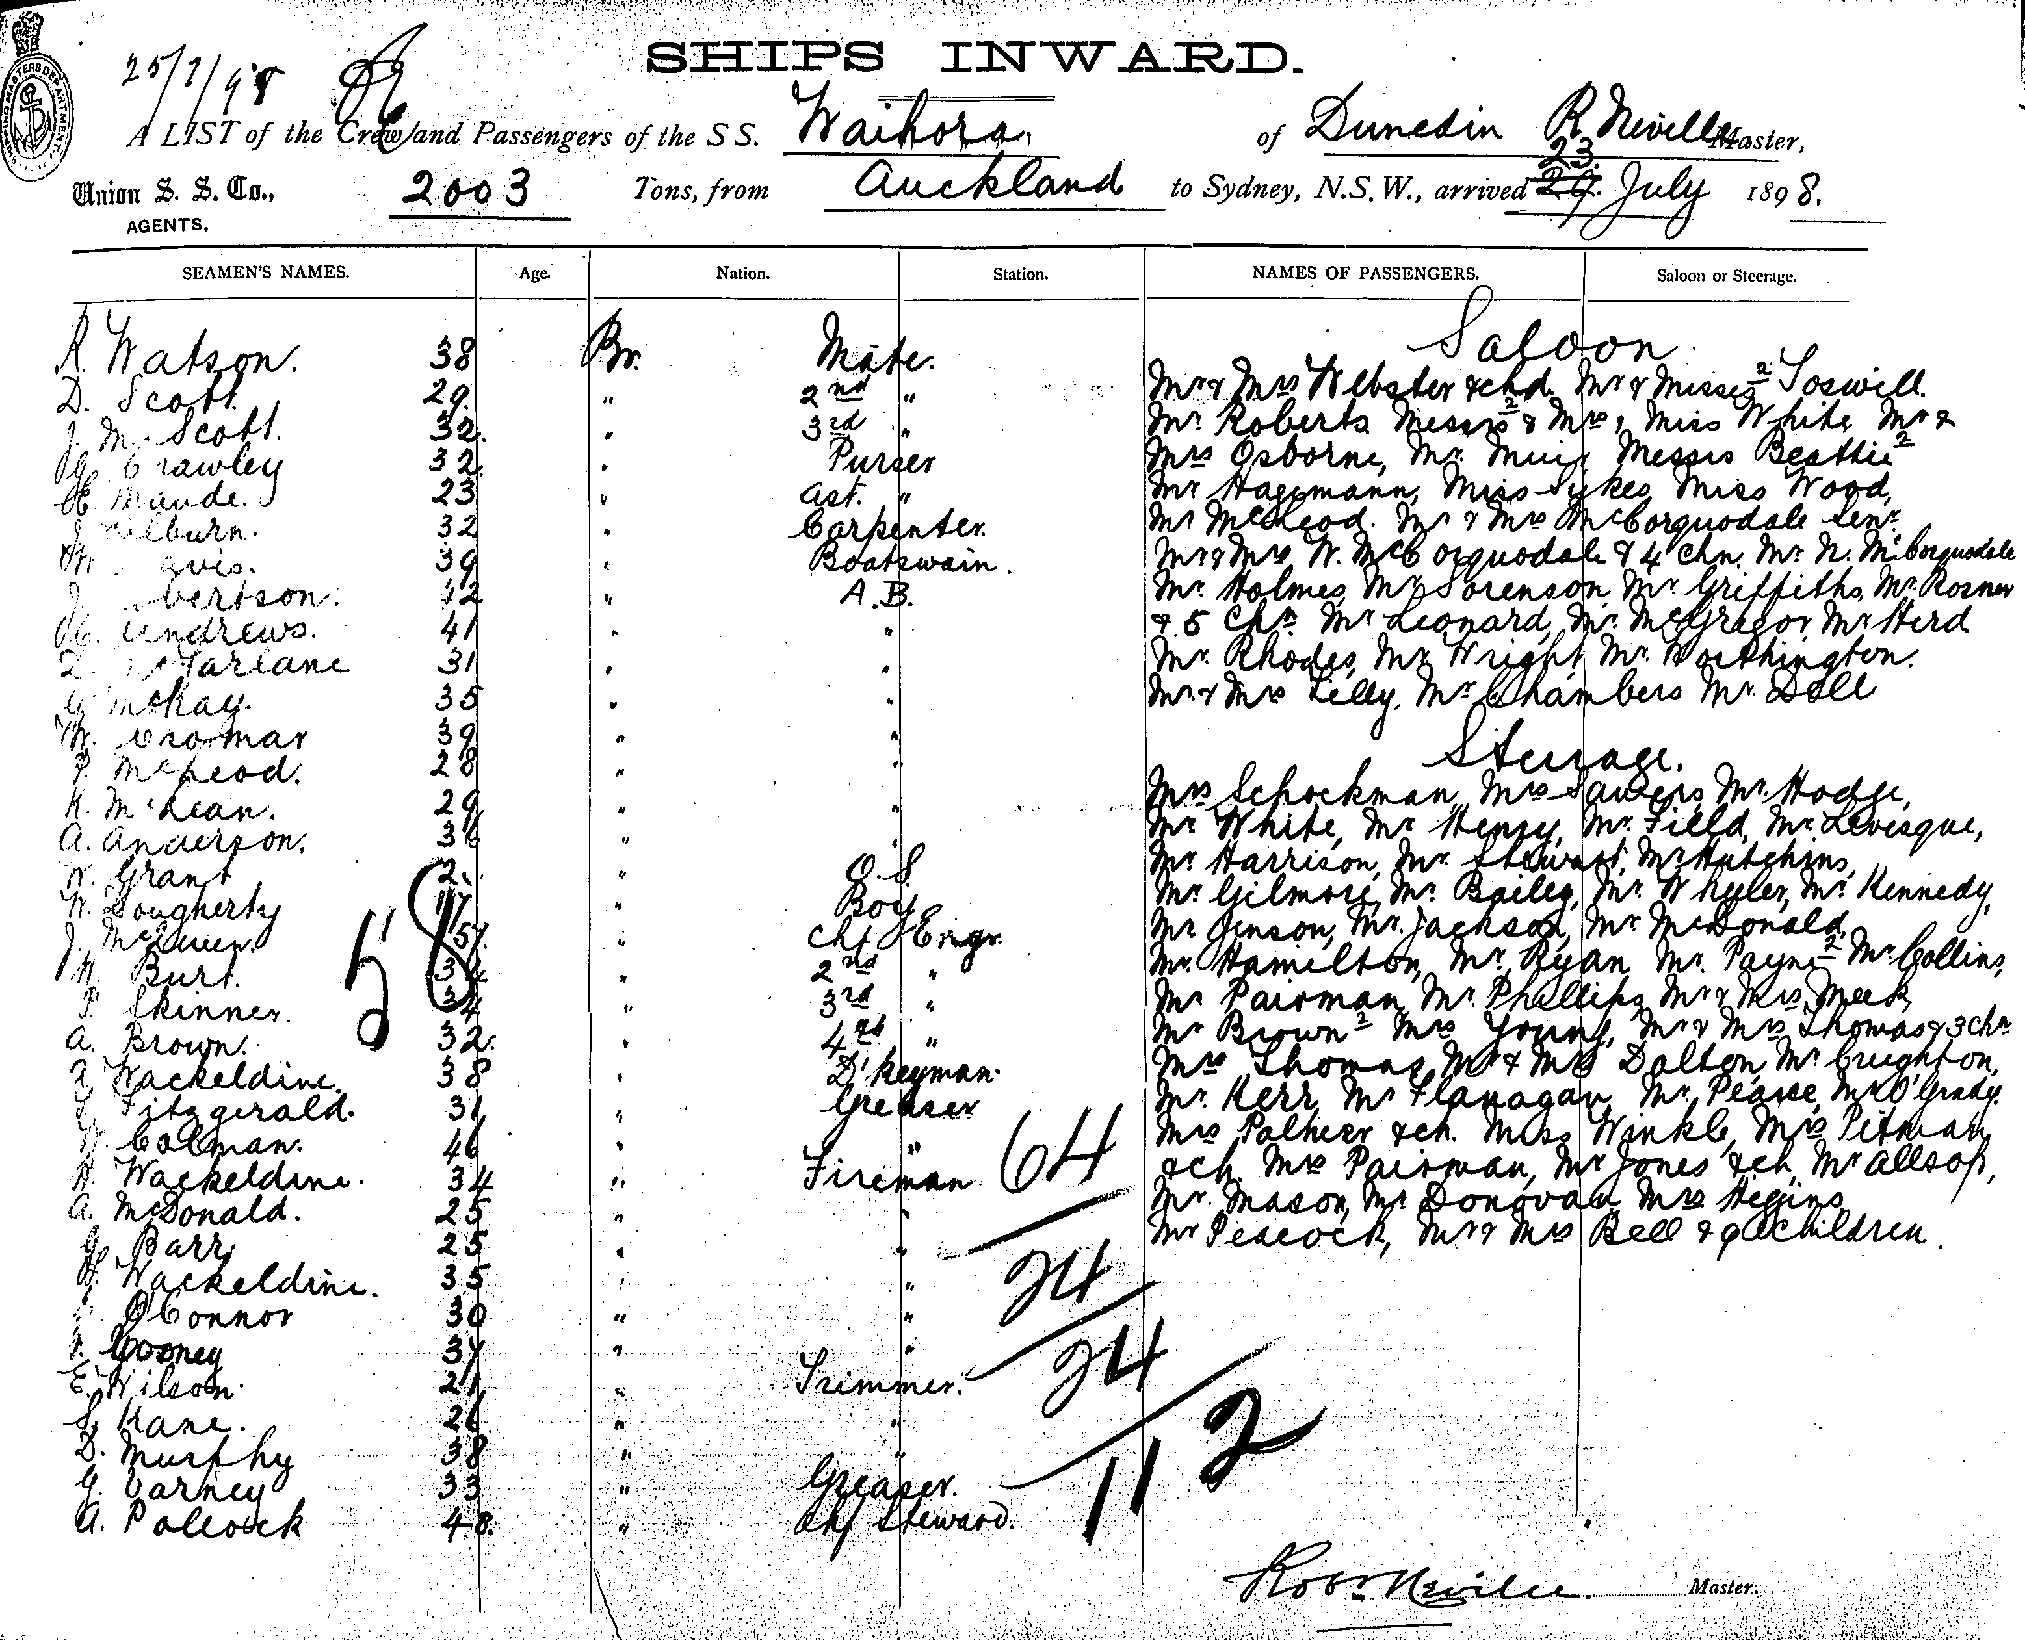 25/7/98
SHIPS INWARD.
A LIST of the Crew and Passengers of the S S. Waihora, of Dunedin R. Neville Master,
Union S. S. Co., 2003 Tons, from Auckland to Sydney, N.S.W., arrived 23. July 1898.
AGENTS.
SEAMEN'S NAMES. Age. Nation. Station. NAMES OF PASSENGERS. Saloon or Steerage.
Saloon
R. Watson. 38 Br. Mate.
D. Scott. 29 " 2nd " Mr & Mrs Webster & chd. Mr & Misses 2 Soswell.
J. M. Scott. 32. " 3rd " Mr. Roberts Messrs 2 & Mrs, Miss White Mr &
Crawley 32. " Purser Mrs Osborne, Mr. Muir Messrs Beattie 2
H. Maude. 23 " Ast. " Mr Hagemann, Miss Sykes Miss Wood,
J. lburn. 32 " Carpenter. Mr McLeod. Mr & Mrs McCorquodale Senr.
avis. 39 " Boatswain. Mr & Mrs W. McCorquodale & 4 chn. Mr. N. McCorquodale
J. bertson. 42 " A.B. Mr. Holmes, Mr Sorenson Mr. Griffiths, Mr. Rosner
Andrews. 41 " " & 5 Chn. Mr Leonard, Mr. McGregor, Mr Herd
Farlane 31 " " Mr. Rhodes, Mr. Wright, Mr. Worthington.
McKay. 35 " " Mr. & Mrs Lilly. Mr Chambers Mr. Doll
W. Cromar 39 " "
Steerage.
P. McLeod. 28 " "
K. McLean. 29 " " Mrs Schockman, Mrs Sawers, Mr. Hodge,
A. Anderson. 36 " " Mr White, Mr Henry, Mr. Field, Mr. Levesque,
W. Grant 2 " O.S. Mr Harrison, Mr. Stewart, Mr Hutchins,
N. Dougherty 17 " Boy Mr. Gilmore, Mr. Bailey, Mr. Whyler, Mr. Kennedy,
J. McQueen. 57. " Chf Engr. Mr Jenson, Mr. Jackson, Mr McDonald,
W. Burt. 34 " 2nd " Mr. Hamilton, Mr. Ryan Mr. Payne 2 Mr. Collins,
P. Skinner. 34 " 3rd " Mr Pairman, Mr. Phillips, Mr & Mrs Meek,
A. Brown. 32. " 4th " Mr Brown 2 Mrs Young, Mr & Mrs Thomas & 3 chn
Wackeldine. 38 " D'keyman. Mrs Thomas, Mr & Mrs Dalton, Mr. Creighton,
Fitzgerald. 31 " Greaser Mr. Kerr, Mr Flanagan, Mr. Pearce, Mr O'Grady.
Colman. 46 " " Mrs Palmer & ch. Miss Winkle, Mrs Pitman
H. Wackeldine. 34 " Fireman & ch. Mrs Pairman, Mr Jones & ch, Mr Allsop,
A. McDonald. 25 " " Mr. Mason, Mr Donovan Mrs Higgins
G. Barr 25 " " Mr Peacock, Mr & Mrs Bell & 9 children.
Wackeldine. 35 " "
O'Connor 30 " "
Cooney 37 " "
E. Wilson. 21 " Trimmer.
S. Kane. 26 " "
D. Murphy 38 " "
G. Varney 33 " Greaser.
A. Pollock 48. " Chf Steward.
58
64
24
24
112
Robt. Neville. Master.